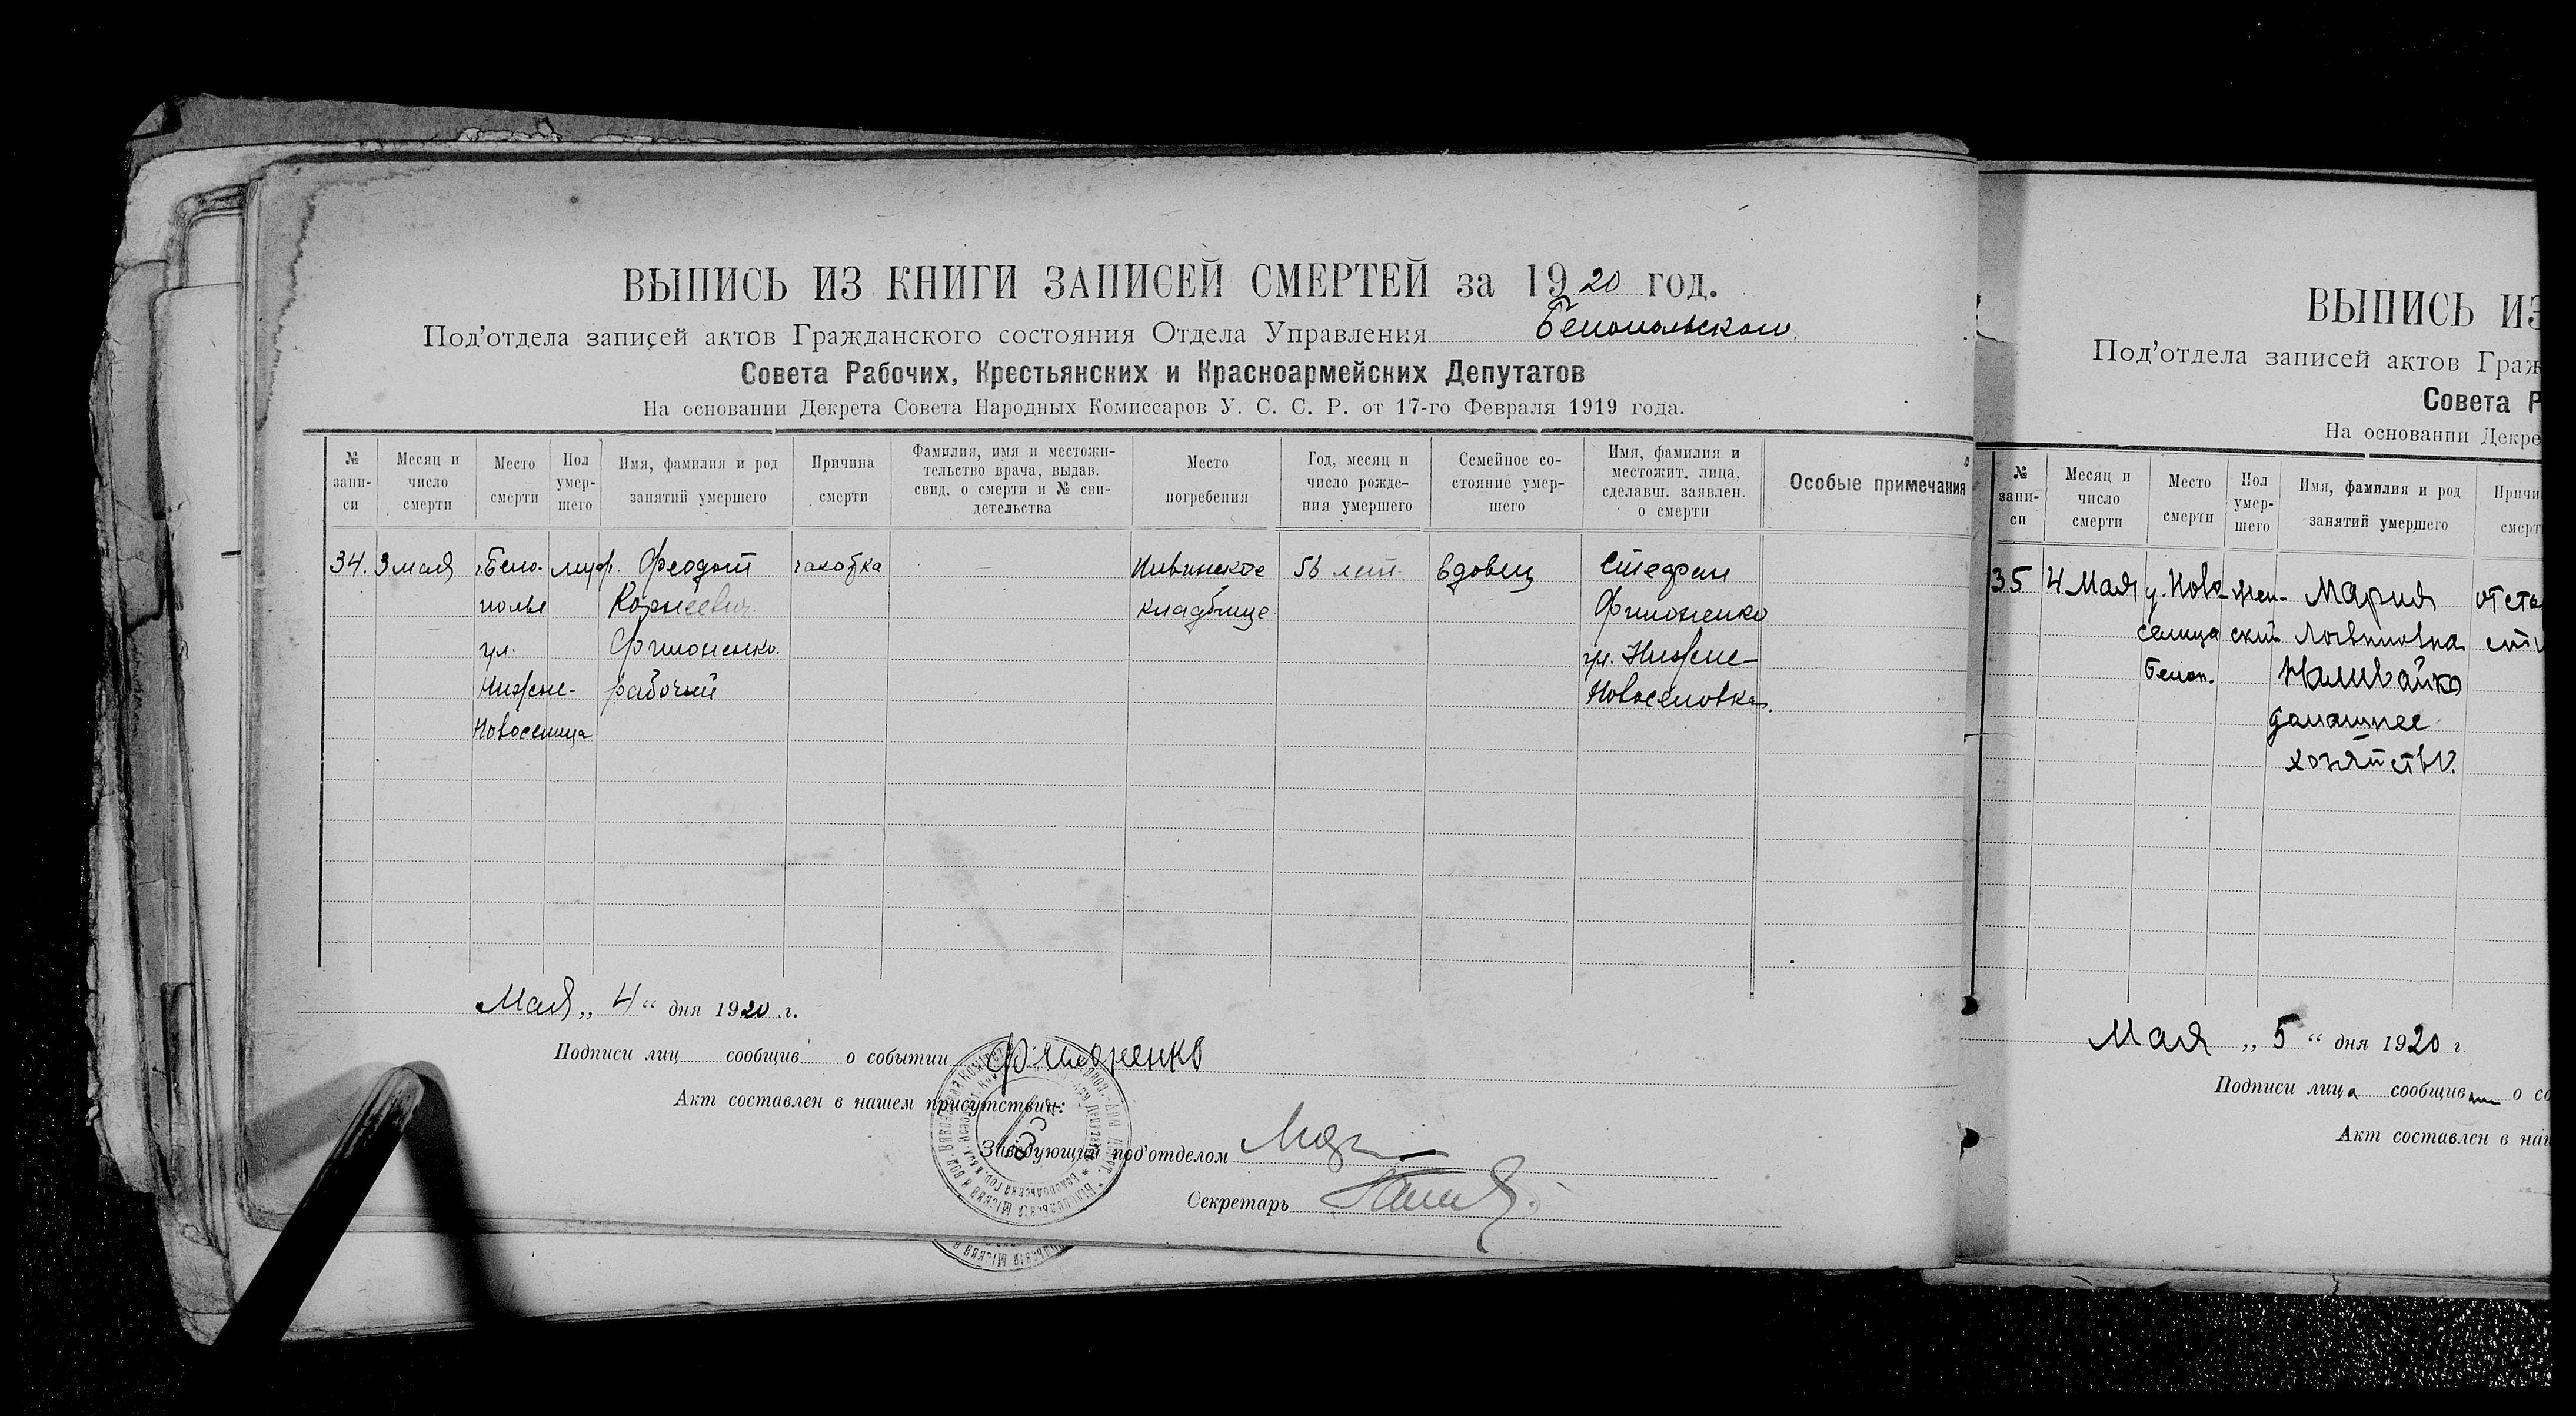 ВЫПИСЬ ИЗ КНИГИ ЗАПИСЕЙ СМЕРТЕЙ за 1920 год.
Под'отдела записей актов Гражданского состояния Отдела Управления Белопольского
Совета Рабочих, Крестьянских и Красноармейских Депутатов
На основании Декрета Совета Народных Комиссаров У. С. С. Р. от 17-го Февраля 1919 года.
№ запи-си
Месяц и число смерти
Место смерти
Пол умер-шего
Имя, фамилия и род занятий умершего
Причина смерти
Фамилия, имя и местожи-тельство врача, выдав. свид. о смерти и № сви-детельства
Место погребения
Год, месяц и число рожде-ния умершего
Семейное со-стояние умер-шего
Имя, фамилия и местожит. лица, сделавш. заявлен. о смерти
Особые примечания
34. 3 мая г. Бело- муж. Феодот чахотка — кладбище 56 лет вдовец Стефан
полье Корнеевич Филоненко
ул. Филоненко. ул. Нижне-
Нижне- рабочий Новоселовка.
Новоселица
Мая „ 4 “ дня 1920 г.
Подписи лиц сообщив о событии Филоненко
Акт составлен в нашем присутствии:
Заведующий под'отделом
Секретарь
ВЫПИСЬ ИЗ
Под'отдела записей актов Граж
Совета Р
На основании Декре
№ запи-си
Месяц и число смерти
Место смерти
Пол умер-шего
Имя, фамилия и род занятий умершего
Причи
смерт
35 4 Мая у. Ново- жен- Мария
селица ский Логвиновна
Белоп. Наливайко
домашнее
хозяйство.
Мая „ 5 “ дня 1920 г.
Подписи лица сообщив о со
Акт составлен в наш